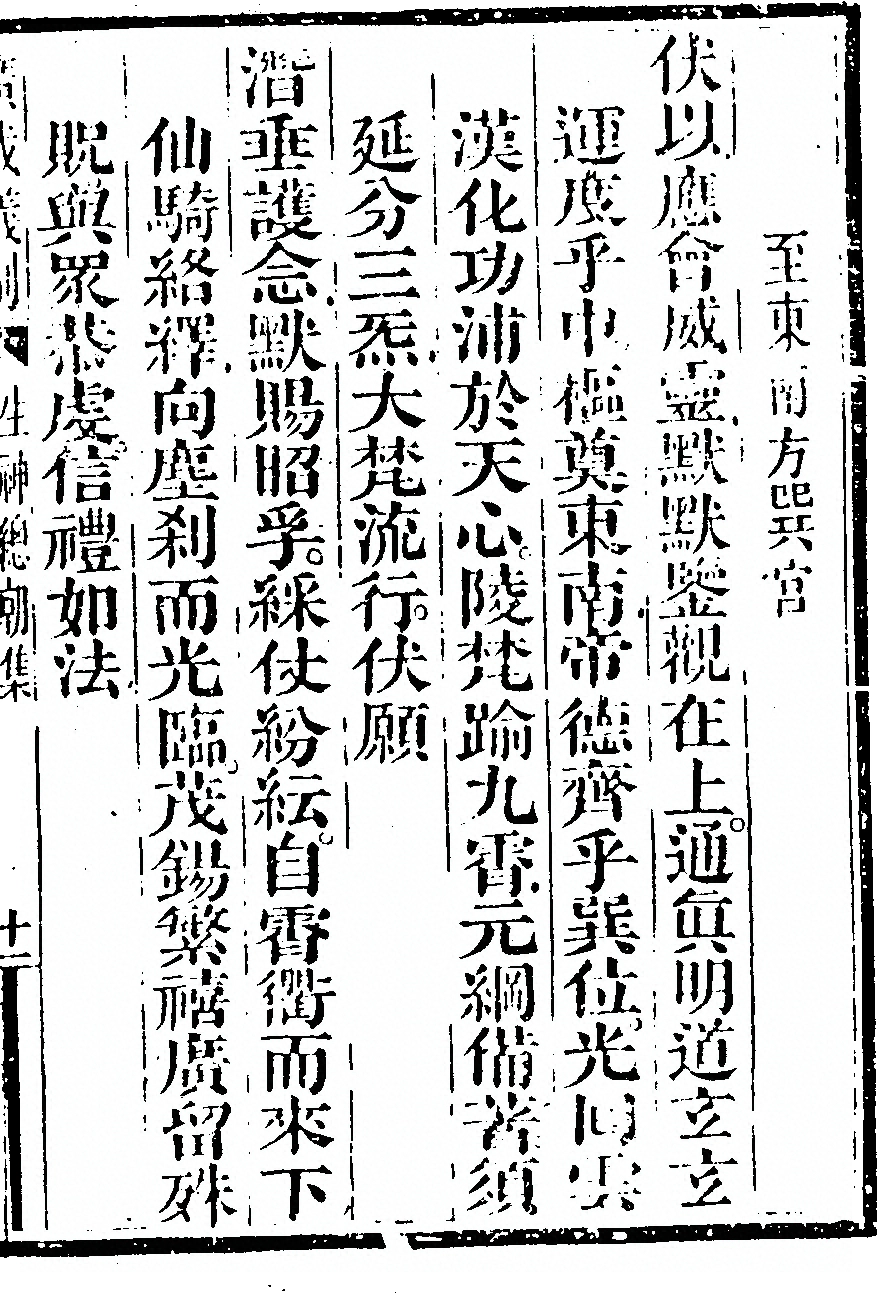 至東南方巽宮
伏以應會威靈默默鑒觀在上。通眞明道立立
運度乎中樞奠東南帝德齊乎巽位。光回雲
漢化功溥於天心。陵梵踰九霄。元綱備著須
延分三炁。大梵流行。伏願
潛垂護念默賜昭孚。綵仗紛紜。自霄衢而來下
仙騎絡繹。向塵刹而光臨。茂錫繁禧廣留殊
貺與眾恭虔。信禮如法
廣成儀制 生神總朝集 十一